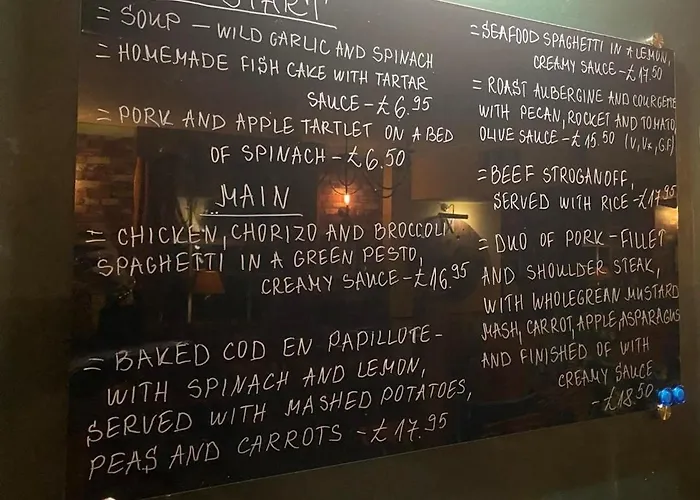 START
= SOUP – WILD GARLIC AND SPINACH
= HOMEMADE FISH CAKE WITH TARTAR
SAUCE – £6.95
= PORK AND APPLE TARTLET ON A BED
OF SPINACH – £6.50
MAIN
= CHICKEN, CHORIZO AND BROCCOLI
SPAGHETTI IN A GREEN PESTO,
CREAMY SAUCE – £16.95
= BAKED COD EN PAPILLOTE –
WITH SPINACH AND LEMON,
SERVED WITH MASHED POTATOES,
PEAS AND CARROTS – £17.95
= SEAFOOD SPAGHETTI IN A LEMON,
CREAMY SAUCE – £17.50
= ROAST AUBERGINE AND COURGETTE
WITH PECAN, ROCKET AND TOMATO,
OLIVE SAUCE – £15.50 (V, VE, GF)
= BEEF STROGANOFF,
SERVED WITH RICE – £17.95
= DUO OF PORK – FILLET
AND SHOULDER STEAK,
WITH WHOLEGREAN MUSTARD
MASH, CARROT, APPLE, ASPARAGUS
AND FINISHED OF WITH
CREAMY SAUCE
– £18.50